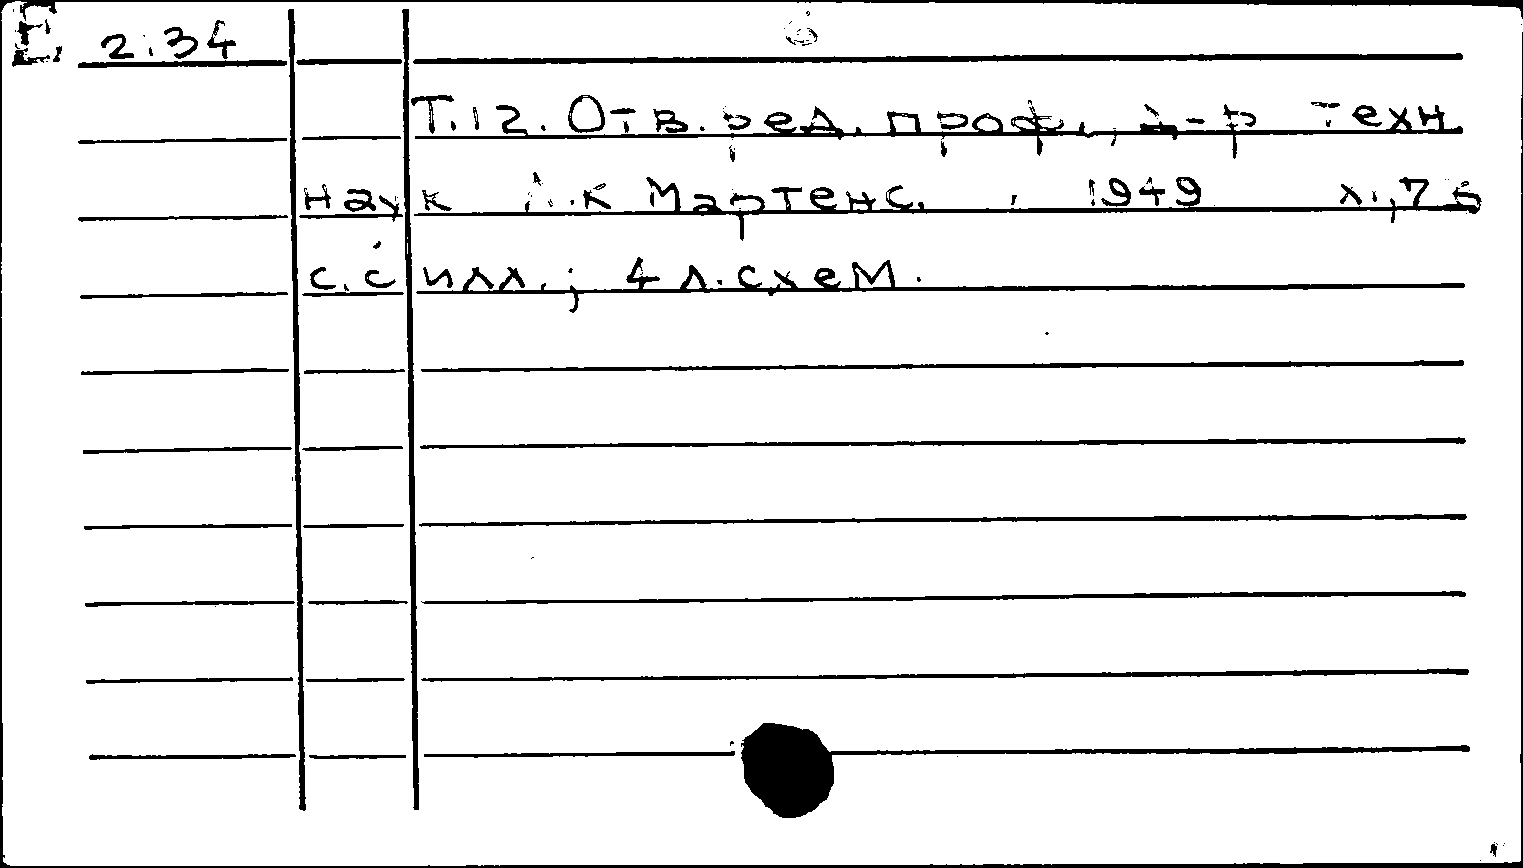 E 2:34 6
Т.12. Отв. ред. проф., д-р техн.
наук Л.К Мартенс. 1949
с. с илл.; 4 л. схем.